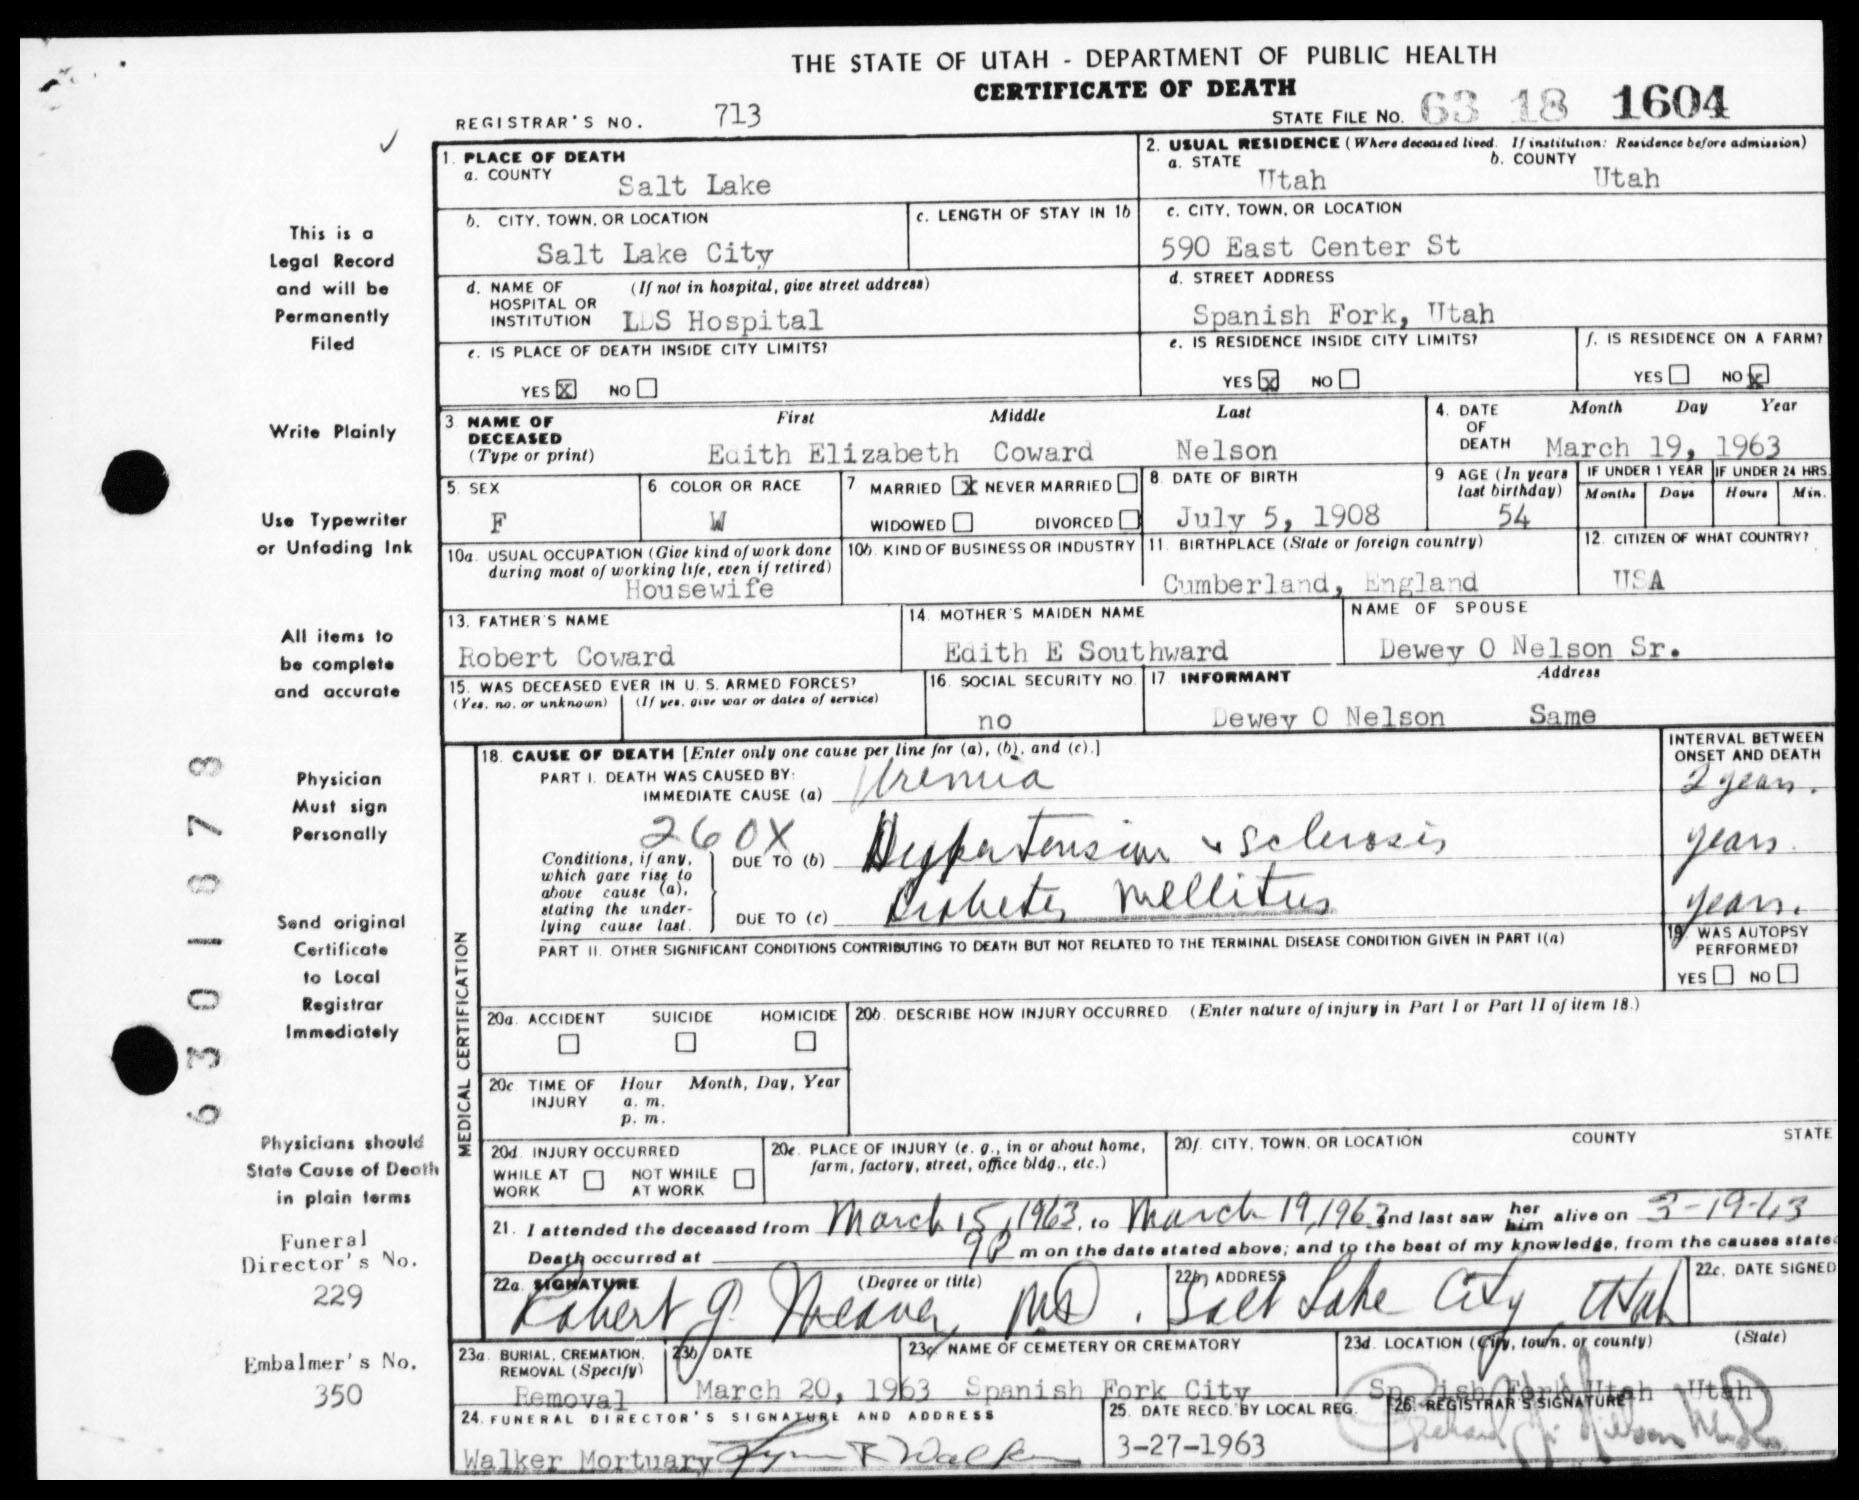 THE STATE OF UTAH - DEPARTMENT OF PUBLIC HEALTH
CERTIFICATE OF DEATH
REGISTRAR'S NO. 713
STATE FILE NO. 63 18 1604
This is a
Legal Record
and will be
Permanently
Filed
Write Plainly
Use Typewriter
or Unfading Ink
All items to
be complete
and accurate
Physician
Must sign
Personally
Send original
Certificate
to Local
Registrar
Immediately
Physicians should
State Cause of Death
in plain terms
Funeral
Director's No.
229
Embalmer's No.
350
6301878
1. PLACE OF DEATH
a. COUNTY
Salt Lake
2. USUAL RESIDENCE (Where deceased lived. If institution: Residence before admission)
a. STATE b. COUNTY
Utah Utah
b. CITY, TOWN, OR LOCATION
Salt Lake City
c. LENGTH OF STAY IN 1b
c. CITY, TOWN, OR LOCATION
590 East Center St
d. NAME OF (If not in hospital, give street address)
HOSPITAL OR
INSTITUTION LDS Hospital
d. STREET ADDRESS
Spanish Fork, Utah
e. IS PLACE OF DEATH INSIDE CITY LIMITS?
YES X NO
e. IS RESIDENCE INSIDE CITY LIMITS?
YES X NO
f. IS RESIDENCE ON A FARM?
YES NO X
3. NAME OF First Middle Last
DECEASED
(Type or print) Edith Elizabeth Coward Nelson
4. DATE Month Day Year
OF
DEATH March 19, 1963
5. SEX
F
6 COLOR OR RACE
W
7 MARRIED X NEVER MARRIED
WIDOWED DIVORCED
8. DATE OF BIRTH
July 5, 1908
9 AGE (In years
last birthday)
54
IF UNDER 1 YEAR IF UNDER 24 HRS.
Months Days Hours Min.
10a. USUAL OCCUPATION (Give kind of work done
during most of working life, even if retired)
Housewife
10b. KIND OF BUSINESS OR INDUSTRY
11. BIRTHPLACE (State or foreign country)
Cumberland, England
12. CITIZEN OF WHAT COUNTRY?
USA
13. FATHER'S NAME
Robert Coward
14. MOTHER'S MAIDEN NAME
Edith E Southward
NAME OF SPOUSE
Dewey O Nelson Sr.
15. WAS DECEASED EVER IN U. S. ARMED FORCES?
(Yes, no, or unknown) (If yes, give war or dates of service)
16. SOCIAL SECURITY NO.
no
17. INFORMANT Address
Dewey O Nelson Same
MEDICAL CERTIFICATION
18. CAUSE OF DEATH [Enter only one cause per line for (a), (b), and (c).]
INTERVAL BETWEEN
ONSET AND DEATH
PART I. DEATH WAS CAUSED BY:
IMMEDIATE CAUSE (a) Uremia 2 years.
260X
Conditions, if any,
which gave rise to
above cause (a),
stating the under-
lying cause last.
DUE TO (b) Hypertension & sclerosis years.
DUE TO (c) Diabetes Mellitus years.
PART II. OTHER SIGNIFICANT CONDITIONS CONTRIBUTING TO DEATH BUT NOT RELATED TO THE TERMINAL DISEASE CONDITION GIVEN IN PART I(a)
19. WAS AUTOPSY
PERFORMED?
YES NO
20a. ACCIDENT SUICIDE HOMICIDE
20b. DESCRIBE HOW INJURY OCCURRED. (Enter nature of injury in Part I or Part II of item 18.)
20c TIME OF Hour Month, Day, Year
INJURY a. m.
p. m.
20d. INJURY OCCURRED
WHILE AT NOT WHILE
WORK AT WORK
20e. PLACE OF INJURY (e. g., in or about home,
farm, factory, street, office bldg., etc.)
20f. CITY, TOWN, OR LOCATION COUNTY STATE
21. I attended the deceased from March 15, 1963, to March 19, 1963 and last saw her him alive on 3-19-63
Death occurred at 9P m on the date stated above; and to the best of my knowledge, from the causes state
22a. SIGNATURE (Degree or title)
Robert J. Weaver MD.
22b. ADDRESS
Salt Lake City, Utah
22c. DATE SIGNED
23a. BURIAL, CREMATION,
REMOVAL (Specify)
Removal
23b. DATE
March 20, 1963
23c. NAME OF CEMETERY OR CREMATORY
Spanish Fork City
23d. LOCATION (City, town, or county) (State)
Spanish Fork Utah Utah
24. FUNERAL DIRECTOR'S SIGNATURE AND ADDRESS
Walker Mortuary Lynn R Walker
25. DATE RECD. BY LOCAL REG.
3-27-1963
26. REGISTRAR'S SIGNATURE